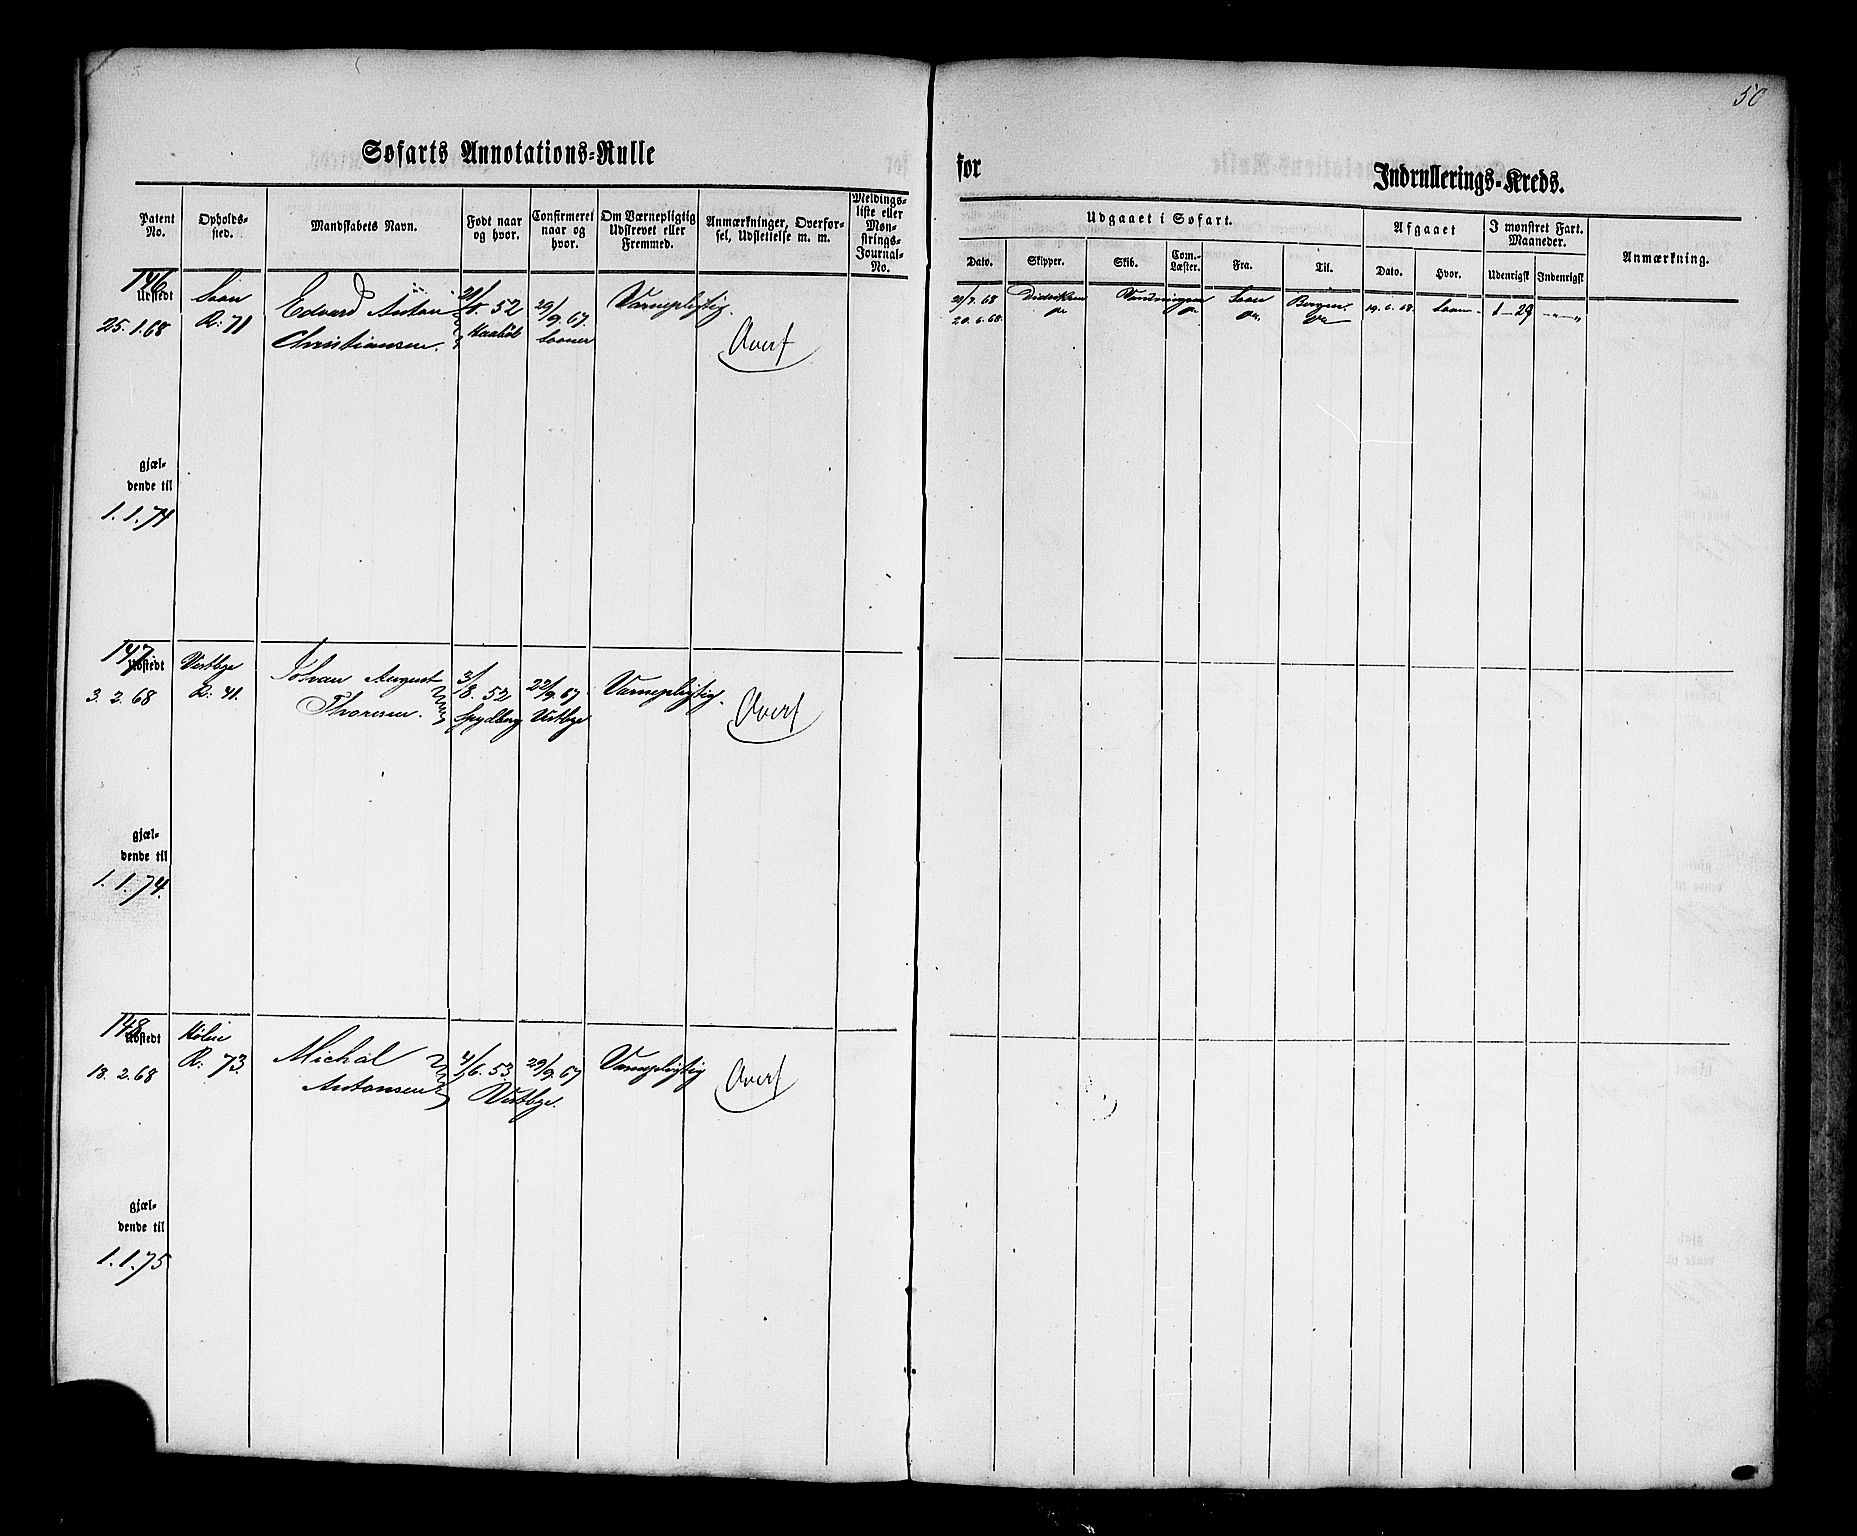 50
Søfarts Annotations-Rulle
for
Indrullerings-Kreds.
Patent No.
Opholds-sted.
Mandskabets Navn.
Født naar og hvor.
Confirmeret naar og hvor.
Om Værnepligtig Udskrevet eller Fremmed.
Anmærkninger, Overførsel, Udslettelse m. m.
Meldings-liste eller Mønstrings-Journal-No.
Udgaaet i Søfart.
Afgaaet
I mønstret Fart. Maaneder.
Anmærkning.
Dato.
Skipper.
Skib.
Com.-Læster.
Fra.
Til.
Dato.
Hvor.
Udenrigsk
Indenrigsk
146
Udstedt
25.1.68
Soon
R: 71
Edvard Anton
Christiansen.
52
29/9.67.
Sooner
Værnepligtig.
Overf
21/7.68
Soon
Bergen
19.6.68.
Soon
1-29
20.6.68.
gjæl-
dende til
1.1.74
147
Udstedt
3.2.68
Vestbye
R: 41
Johan August
Thoresen.
3/8.52
Spydberg
22/9.67
Vestbye
Værnepligtig.
Overf
gjæl-
dende til
1.1.74.
148
Udstedt
18.2.68
Hølen
R: 73.
Michal
Antonsen
4/6.53
29/9.67
Vestbye.
Værnepligtig
Overf
gjæl-
dende til
1.1.75